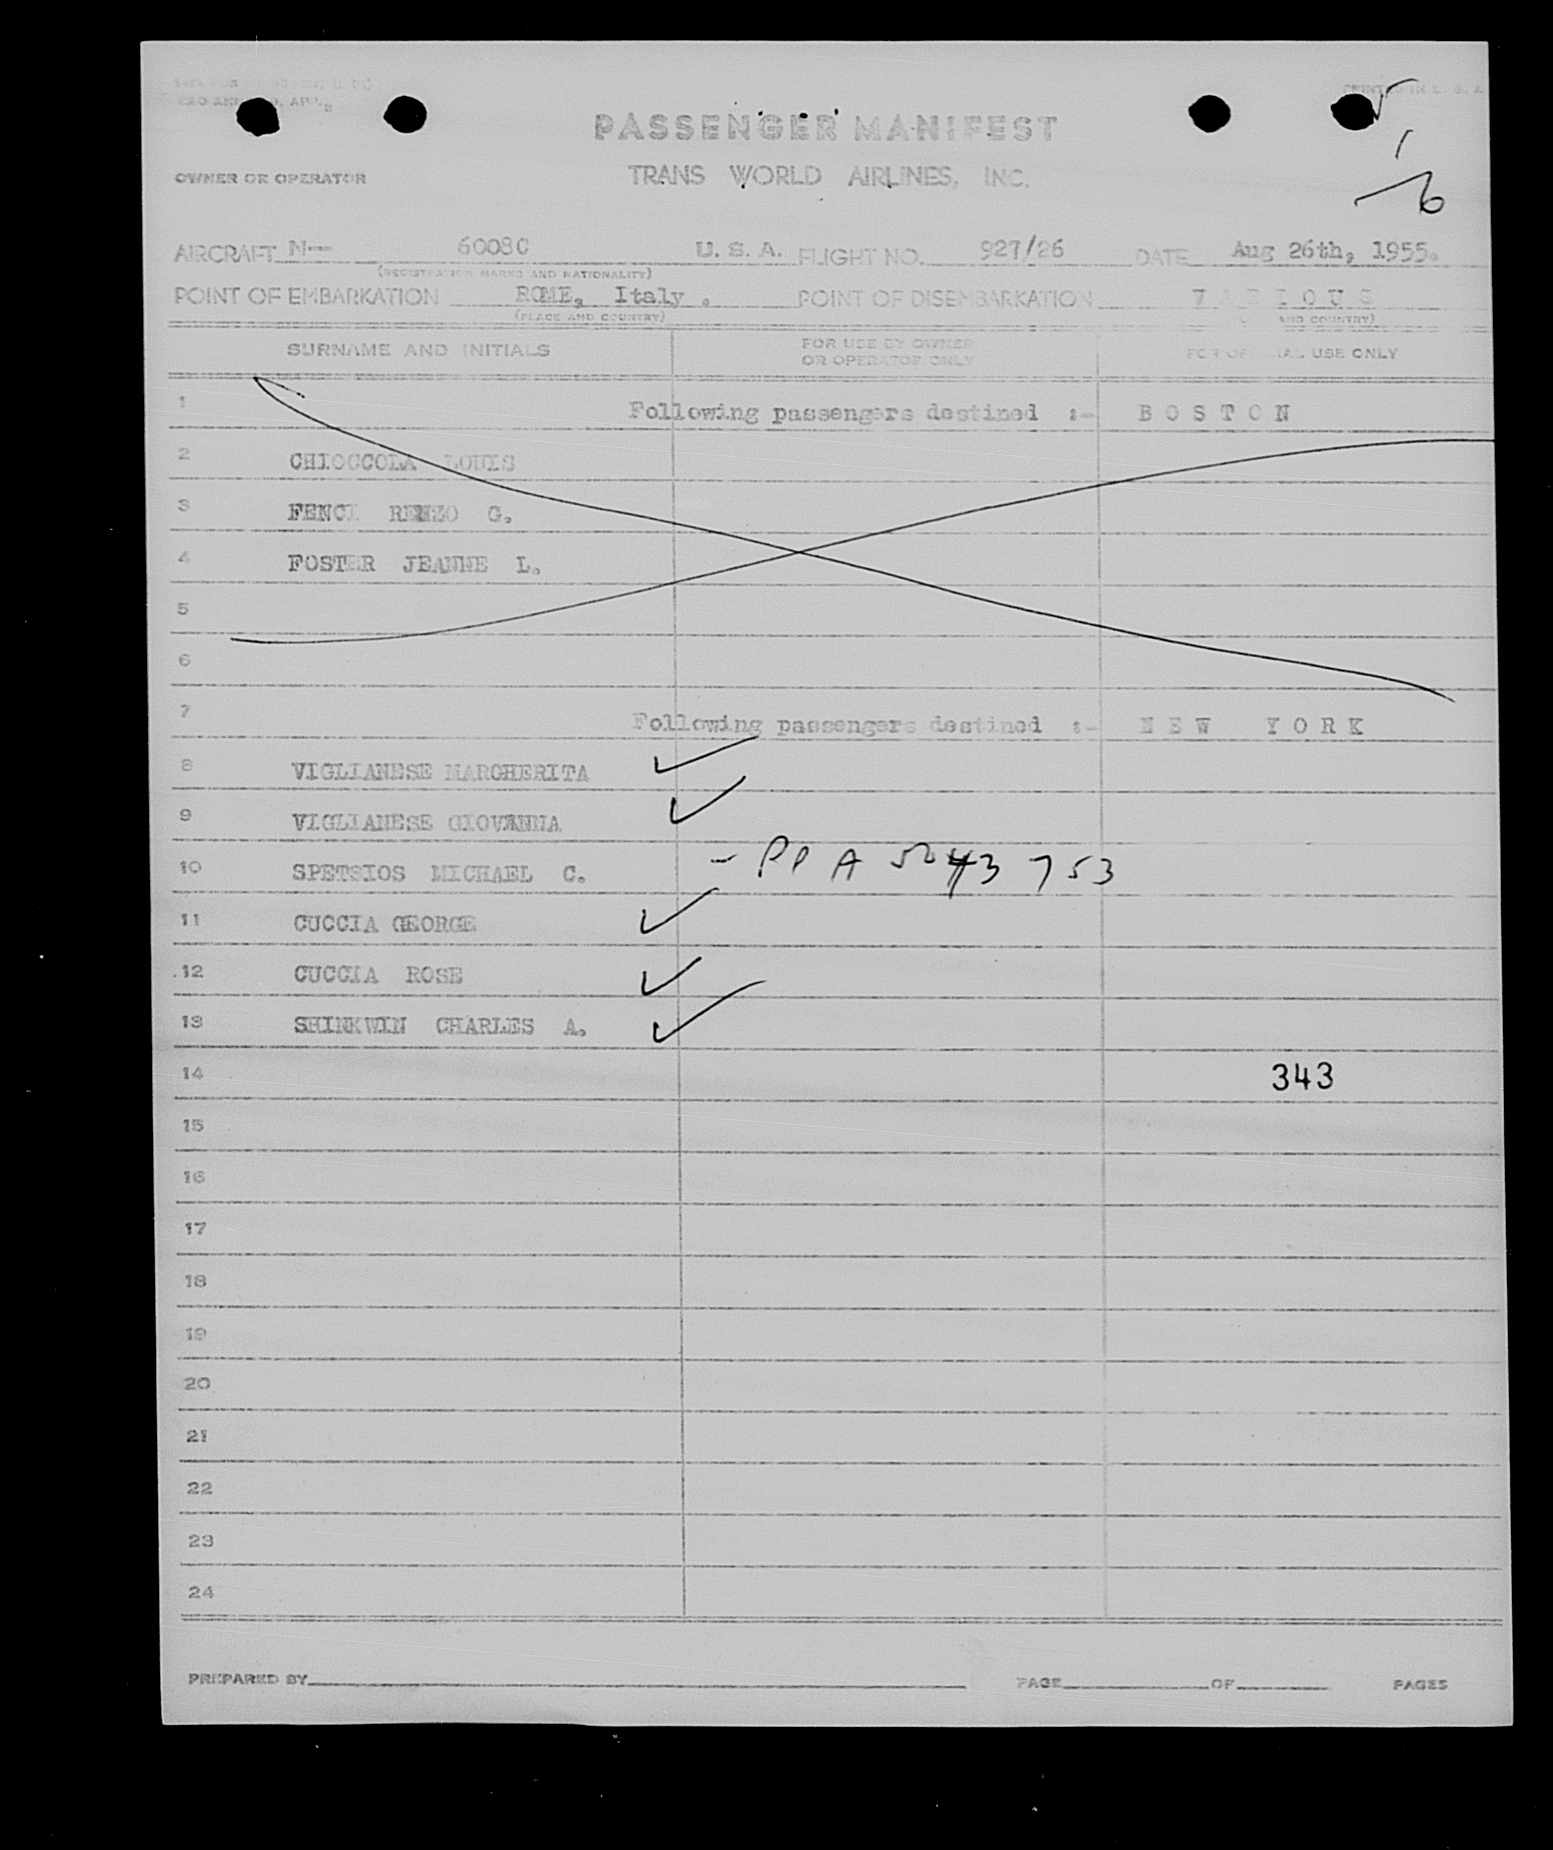 PRINTED IN U. S. A.
PASSENGER MANIFEST
OWNER OR OPERATOR TRANS WORLD AIRLINES, INC.
1
6
AIRCRAFT N-- 6008C U. S. A. FLIGHT NO. 927/26 DATE Aug 26th, 1955.
(REGISTRATION MARKS AND NATIONALITY)
POINT OF EMBARKATION ROME, Italy . POINT OF DISEMBARKATION V A R I O U S
(PLACE AND COUNTRY) AND COUNTRY)
SURNAME AND INITIALS FOR USE BY OWNER OR OPERATOR ONLY FOR OFFICIAL USE ONLY
1 Following passengers destined :- B O S T O N
2 CHIOCCOLA LOUIS
3 FENCI RENZO G.
4 FOSTER JEANNE L.
5
6
7 Following passengers destined :- N E W Y O R K
8 VIGLIANESE MARGHERITA
9 VIGLIANESE GIOVANNA
10 SPETSIOS MICHAEL C. - PP A 5243 753
11 CUCCIA GEORGE
12 CUCCIA ROSE
13 SHINKWIN CHARLES A.
14 343
15
16
17
18
19
20
21
22
23
24
PREPARED BY PAGE OF PAGES